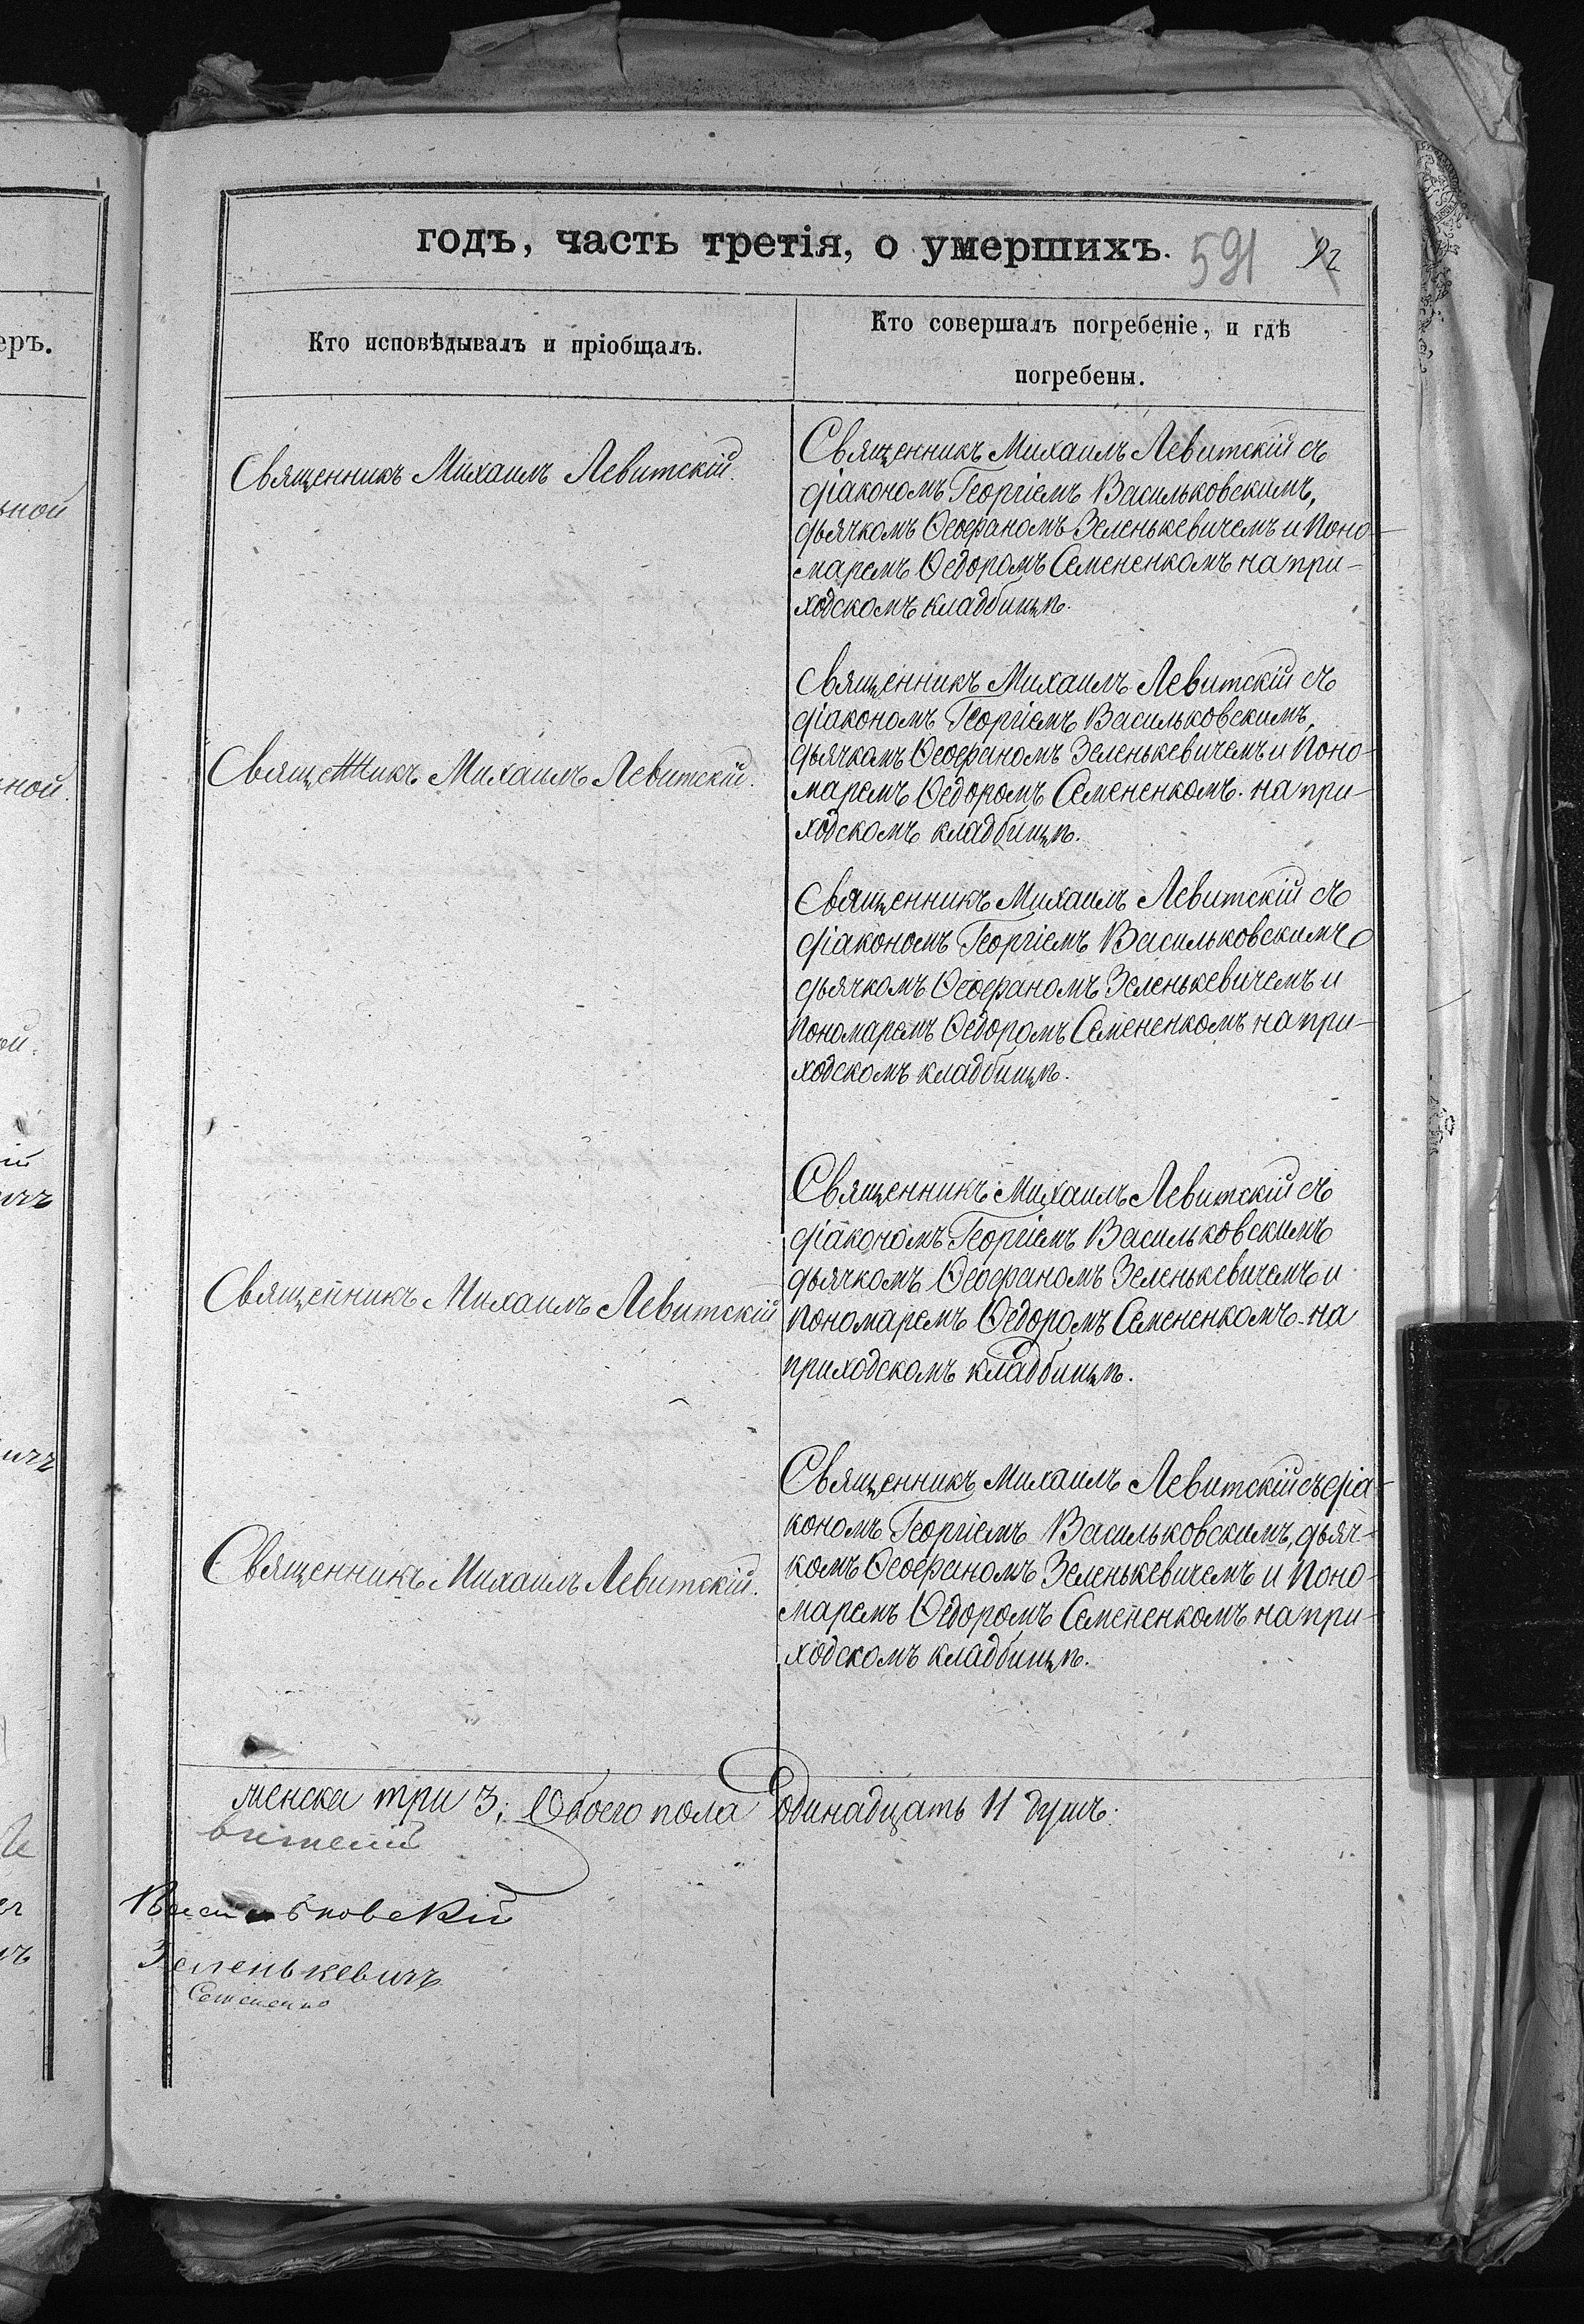 годъ, часть третія, о умершихъ.
591
Кто исповѣдывалъ и пріобщалъ.
Кто совершалъ погребеніе, и гдѣ
погребены.
еръ.
Священникъ Михаилъ Левитскій.
Священникъ Михаилъ Левитскій съ
діакономъ Георгіемъ Васильковскимъ,
дьячкомъ Ѳеофаномъ Зеленькевичемъ и Поно-
маремъ Ѳедоромъ Семененкомъ на при-
ходскомъ кладбищѣ.
Священникъ Михаилъ Левитскій.
Священникъ Михаилъ Левитскій съ
діакономъ Георгіемъ Васильковскимъ,
дьячкомъ Ѳеофаномъ Зеленькевичемъ и Поно-
маремъ Ѳедоромъ Семененкомъ на при-
ходскомъ кладбищѣ.
Священникъ Михаилъ Левитскій съ
діакономъ Георгіемъ Васильковскимъ
дьячкомъ Ѳеофаномъ Зеленькевичемъ и
Пономаремъ Ѳедоромъ Семененкомъ на при-
ходскомъ кладбищѣ.
Священникъ Михаилъ Левитскій
Священникъ Михаилъ Левитскій съ
діакономъ Георгіемъ Васильковскимъ
дьячкомъ Ѳеофаномъ Зеленькевичемъ и
Пономаремъ Ѳедоромъ Семененкомъ на
приходскомъ кладбищѣ.
Священникъ Михаилъ Левитскій.
Священникъ Михаилъ Левитскій съ діа-
кономъ Георгіемъ Васильковскимъ, дьяч-
комъ Ѳеофаномъ Зеленькевичемъ и Поно-
маремъ Ѳедоромъ Семененкомъ на при-
ходскомъ кладбищѣ.
женска три 3; Обоего пола одинадцать 11 душъ.
витскій
Васильковскій
Зеленькевичъ
Семененко